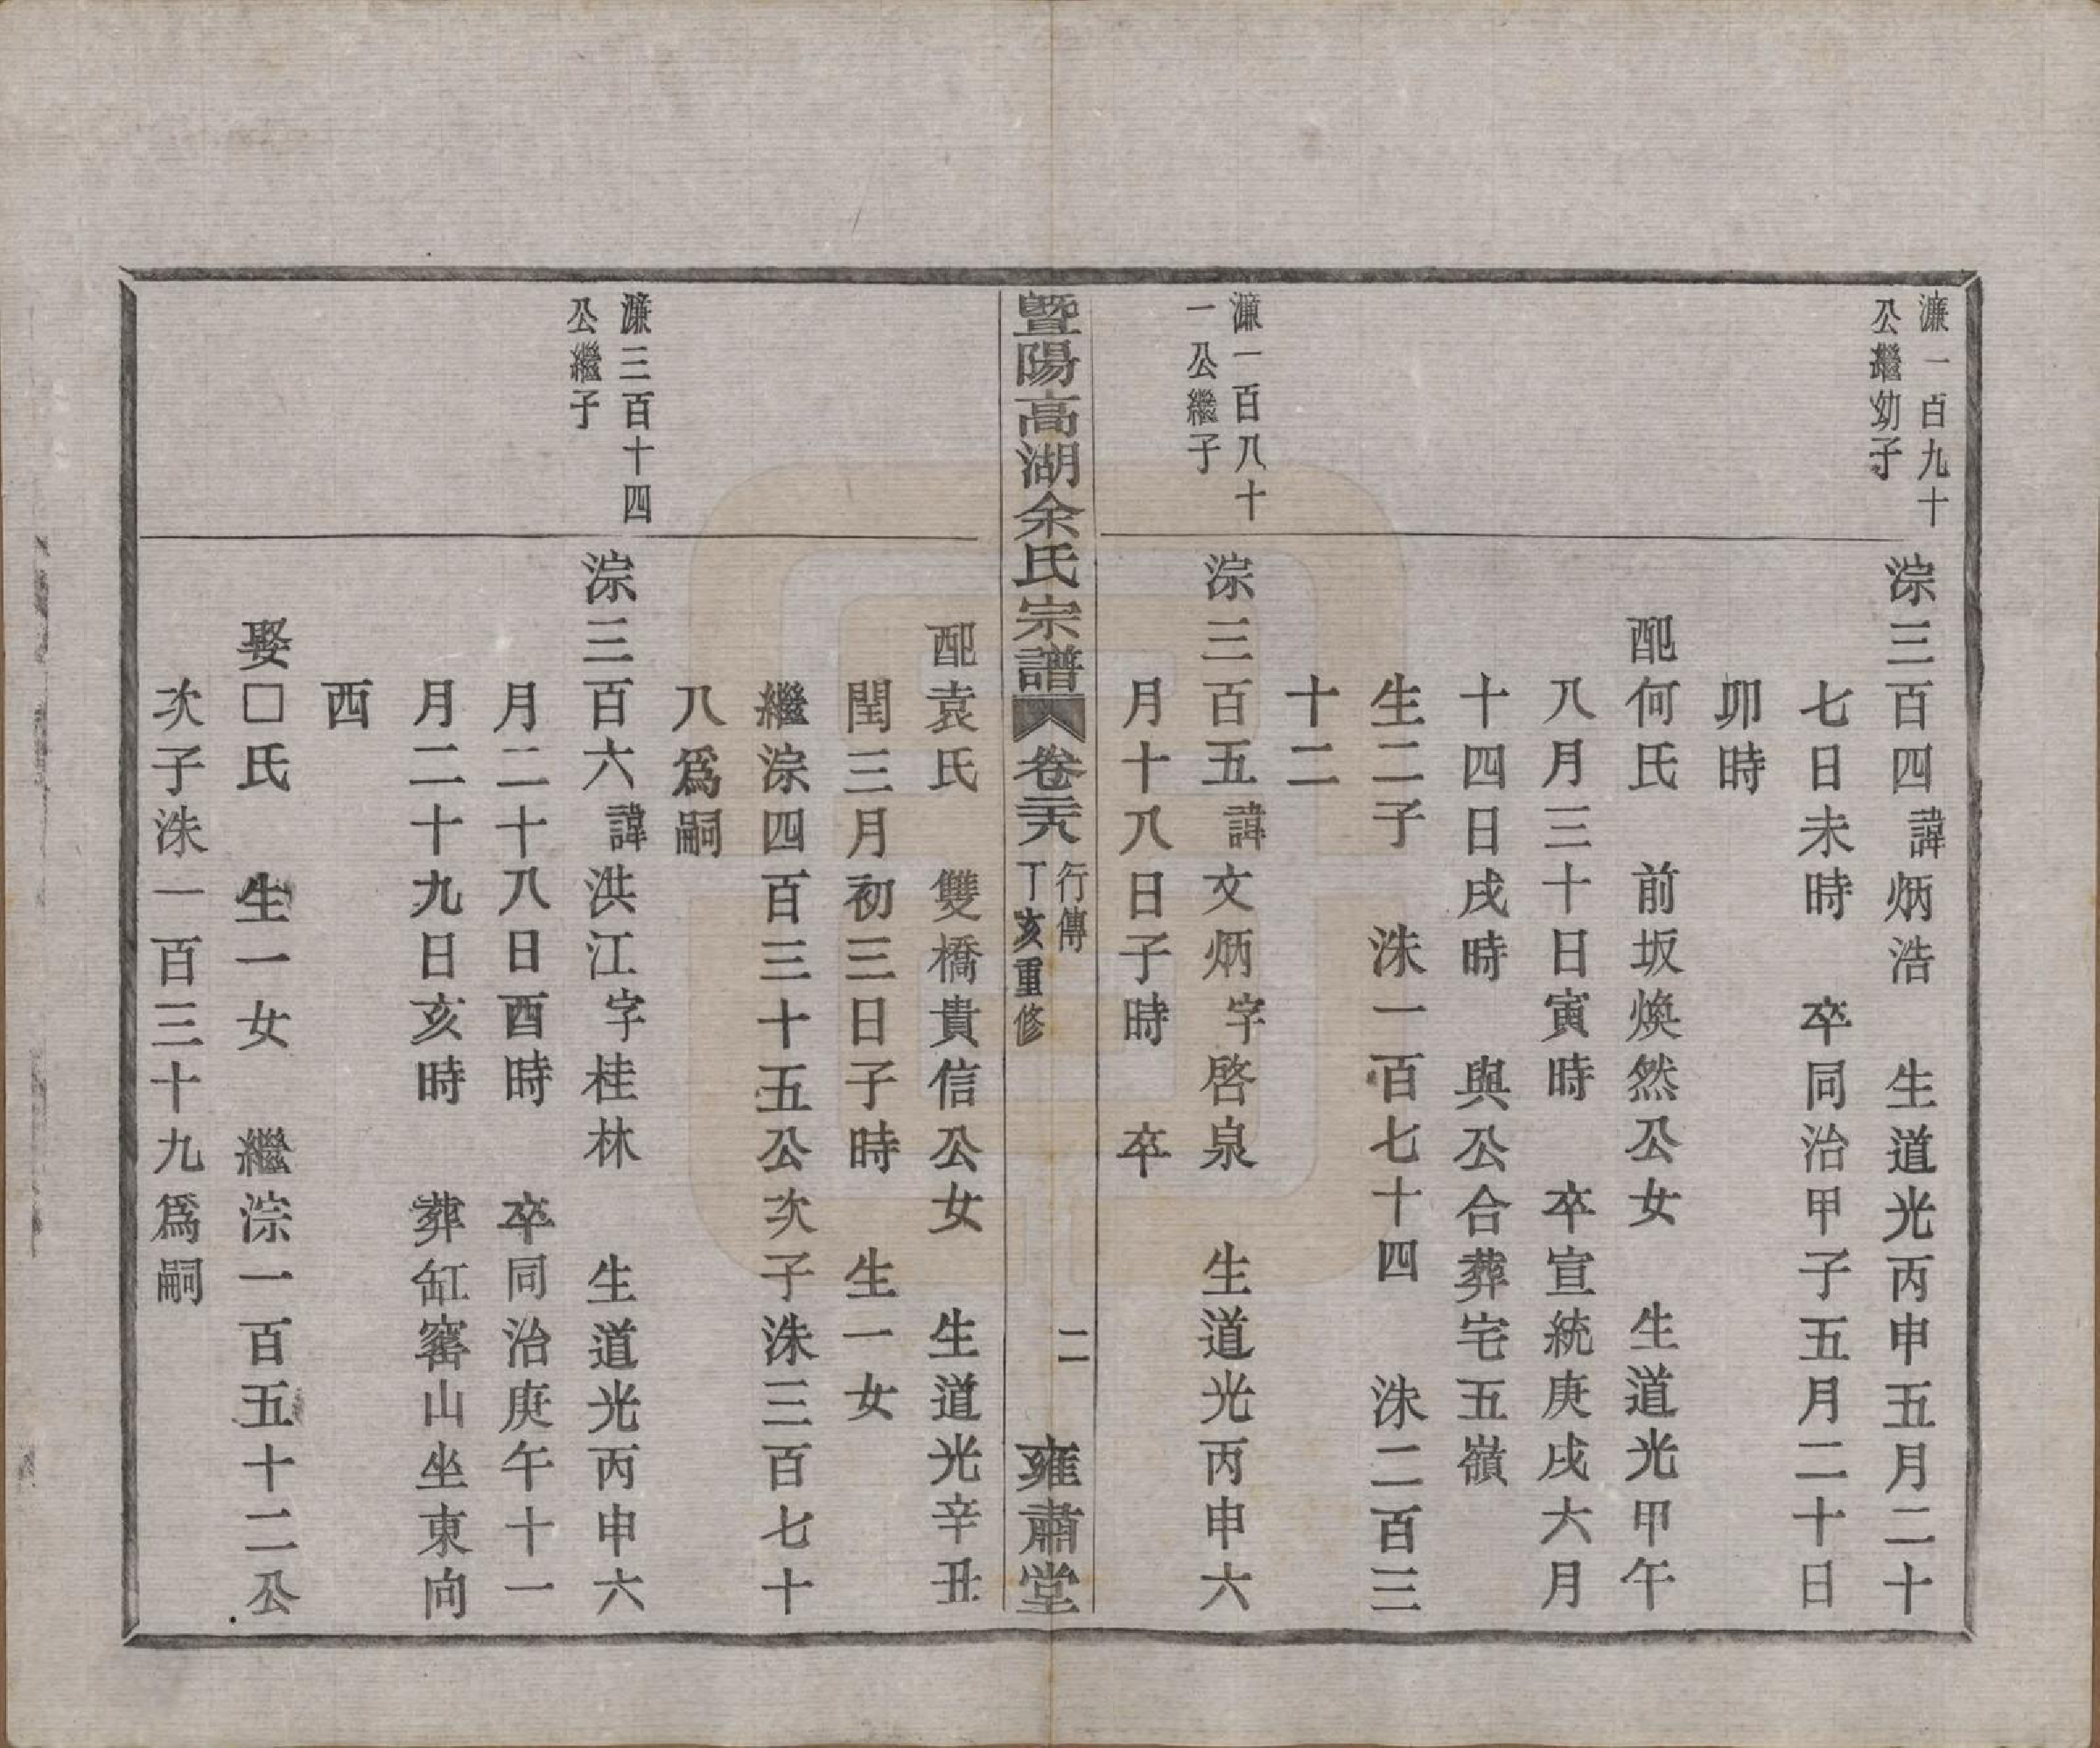 濂一百九十
公繼幼子
淙三百四諱炳浩　生道光丙申五月二十
七日未時　卒同治甲子五月二十日
卯時
配何氏　前坂煥然公女　生道光甲午
八月三十日寅時　卒宣統庚戌六月
十四日戌時　與公合葬宅五嶺
生二子　洙一百七十四　洙二百三
十二
濂一百八十
一公繼子
淙三百五諱文炳字啓泉　生道光丙申六
月十八日子時　卒
暨陽高湖余氏宗譜　卷二十八　行傳　丁亥重修　二　雍肅堂
配袁氏　雙橋貴信公女　生道光辛丑
閏三月初三日子時　生一女
繼淙四百三十五公次子洙三百七十
八爲嗣
濂三百十四
公繼子
淙三百六諱洪江字桂林　生道光丙申六
月二十八日酉時　卒同治庚午十一
月二十九日亥時　葬缸窰山坐東向
西
娶□氏　生一女　繼淙一百五十二公
次子洙一百三十九爲嗣